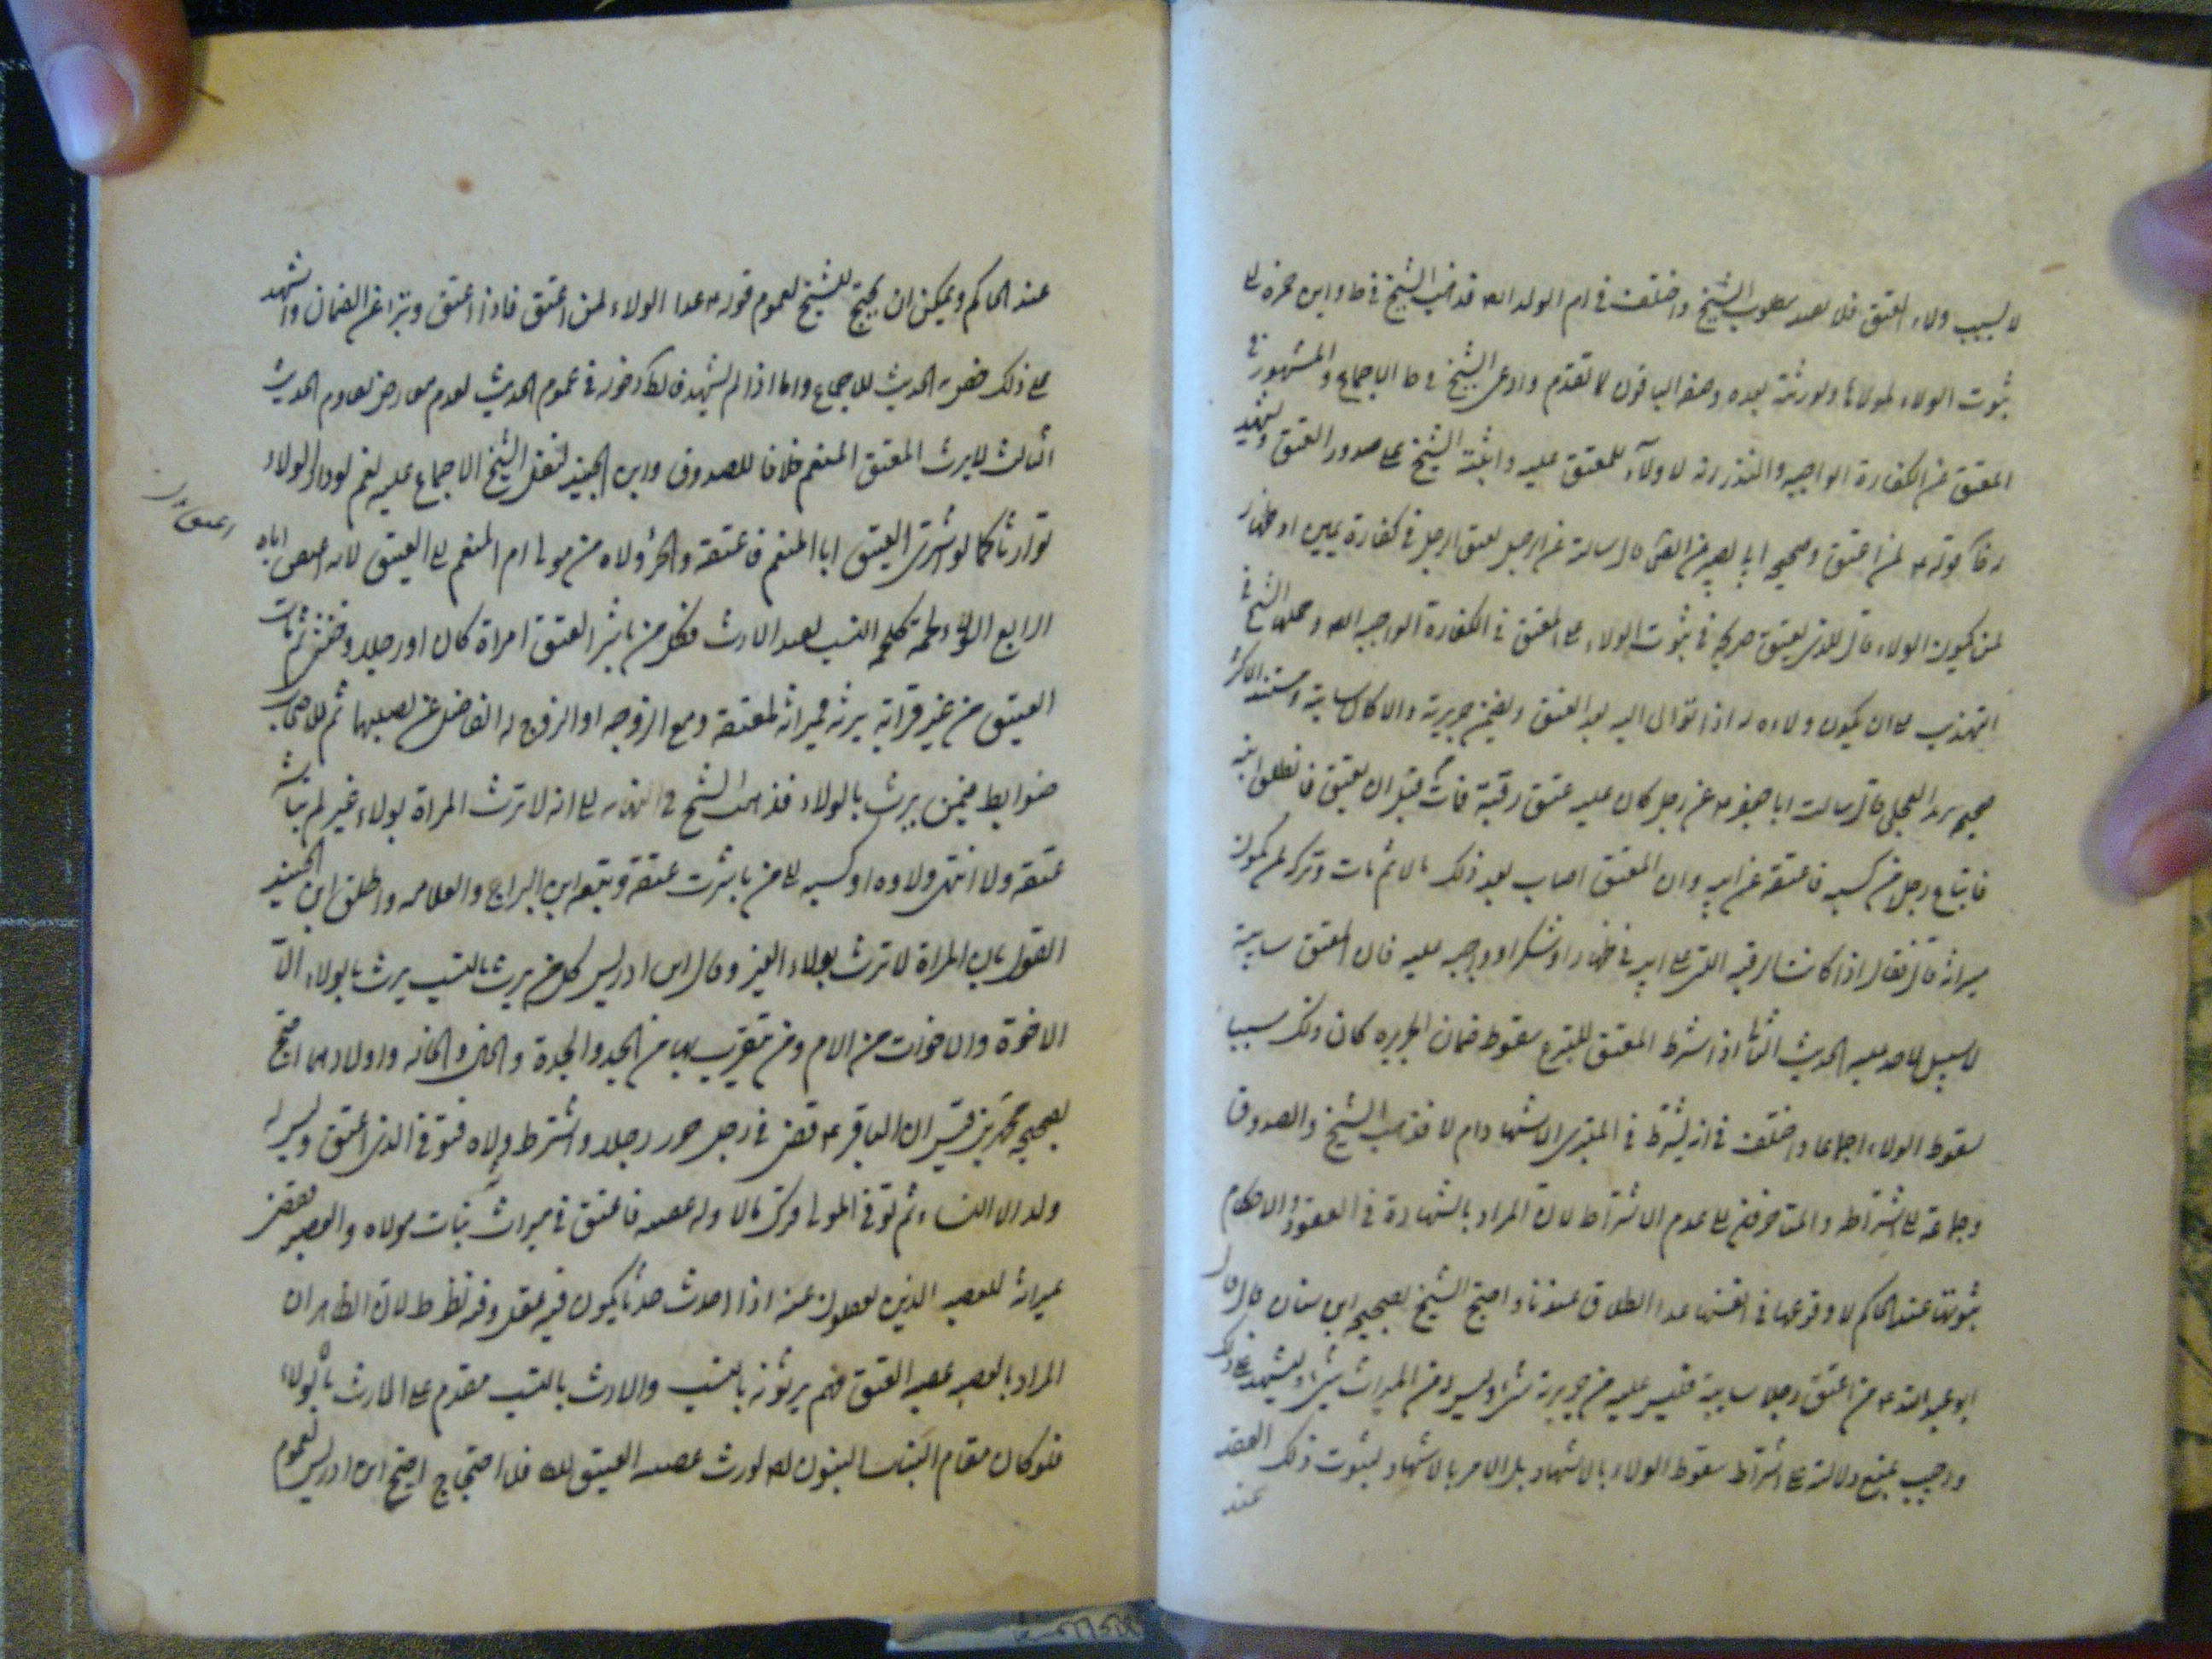 لا بسبب ولاء العتق فلا الشيخ واختلف في ام الولد فذهب الشيخ في ط وابن حمزه الى
ثبوت الولاء لمولاها ولورثته بعده ومنعه الباقون لما تقدم وادعى الشيخ في ط الاجماع والمشهور في
المعتق في الكفارة الواجبه والنذر انه لا ولاء للمعتق عليه واثبته الشيخ على صدور العتق
لمن اعتق وصحيح ابي بصير عن الصم قال سالته عن الرجل يعتق الرجل في كفارة يمين او ظهار
لمن يكون الولاء قال للذي يعتق صريح في ثبوت الولاء على المعتق في الكفارة الواجبه وحملها الشيخ في
التهذيب على ان يكون ولاءه له اذا توالى اليه بعد العتق ويضمن جريرته والا كان سايبة ومستند الاكثر
صحيح بريد العجلي قال سالت ابا جعفر ع عن رجل كان عليه عتق رقبة فمات قبل ان يعتق فانطلق ابنه
فابتاع رجلا من كسبه فاعتقه عن ابيه وان المعتق اصاب بعد ذلك مالا ثم مات وتركه لمن يكون
ميراثه قال فقال اذا كانت الرقبه التي على ابيه في ظهار او شكر او واجبه عليه فان المعتق سايبة
لا سبيل لاحد عليه الحديث الثاني اذا شرط المعتق المتبرع سقوط ضمان الجريره كان ذلك سببا
لسقوط الولاء اجماعا واختلف في انه يشترط في التبري الاشهاد ام لا فذهب الشيخ والصدوق
وجماعة الى اشتراطه والمتاخرون الى عدم الاشتراط لان المراد بالشهادة في العقود والاحكام
ثبوتها عند الحاكم لا وقوعها في انفسها عدا الطلاق عندنا واحتج الشيخ بصحيح ابن سنان قال قال
ابو عبد الله ع من اعتق رجلا سايبة فليس عليه من جريرته شيء وليس له من الميراث شيء وليشهد على ذلك
واجيب بمنع دلالته على اشتراط سقوط الولاء بالاشهاد بل الامر بالاشهاد لثبوت ذلك العقد
عند
عند الحاكم ويمكن ان يحتج للشيخ بعموم قوله ع الولاء لمن اعتق فاذا اعتق وتبرا من الضمان واشهد
على ذلك خص الحديث للاجماع واما اذا لم يشهد في عموم الحديث لعدم معارض الحديث
الثالث لا يرث المعتق المنعم خلافا للصدوق وابن الجنيد لنقل الشيخ الاجماع عليه نعم لو دار الولاء
توارثا كما لو اشترى العتيق ابا المنعم فاعتقه وانجر ولاه من مولى ام المنعم الى العتيق لانه اعتق اباه
الرابع الولاء لحمة كلحمة النسب بعد الارث فكل من باشر العتق امراة كان او رجلا وخنثى ثم مات
العتيق من غير قرابة يرثه فميراثه لمعتقه ومع الزوجه او الزوج له الفاضل عن نصيبهما ثم للاصحاب
ضوابط فيمن يرث بالولاء فذهب الشيخ في النهايه الى انه لا ترث المراة بولاء غير لم تباشر
عتقه ولا انتهى ولاوه او كسبه الى من باشرت عتقه وتبعه ابن البراج والعلامه واطلق ابن الجنيد
القول بان المراة لا ترث بولاء الغير وقال ابن ادريس كل من يرث بالنسب يرث بالولاء الا
الاخوة والاخوات من الام ومن يتقرب بها من الجد والجدة والخال والخاله واولادهما احتج
بصحيح محمد بن قيس ان الباقر ع قضى في رجل حرر رجلا واشترط ولاه فتوفي الذي اعتق وليس له
ولد الا النساء ثم توفي المولى وترك مالا وله عصبه فاعتق في ميراث بنات مولاه والعصبه فقضى
بميراثه للعصبه الذين يعقلون عنه اذا احدث حدثا يكون فيه عقل وفيه نظر لان الظاهر ان
المراد بالعصبه عصبه العتيق فهم يرثونه بالنسب والارث بالنسب مقدم على الارث بالولاء
فلو كان مقام البنات البنون لم يورث عصبه العتيق فلا احتجاج احتج ابن ادريس بعموم